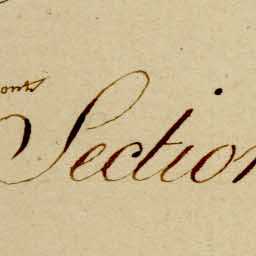 onts
Section